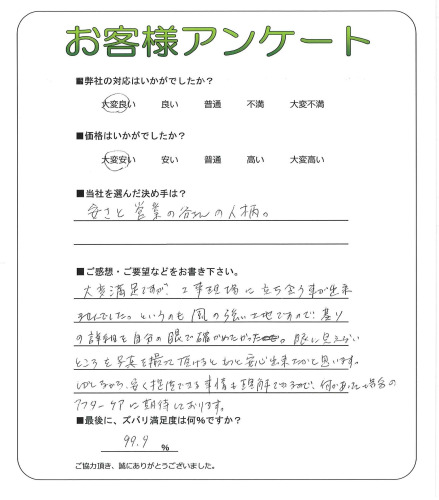 お客様アンケート
■弊社の対応はいかがでしたか?
大変良い 良い 普通 不満 大変不満
■価格はいかがでしたか?
大変安い 安い 普通 高い 大変高い
■当社を選んだ決め手は?
安さと営業の の人柄。
■ご感想・ご要望などをお書き下さい。
大変満足ですが、工事現場に立ち会う事が出来
ませんでした。というのも風の強い土地ですので、
の詳細を自分の眼で確かめたかった。眼に見えない
ところを写真を撮って頂けるともっと安心出来たかと思います。
しかしながら、安く提供できる事情も理解できるので、何かあった場合の
アフターケアに期待しております。
■最後に、ズバリ満足度は何%ですか?
99.9 %
ご協力頂き、誠にありがとうございました。